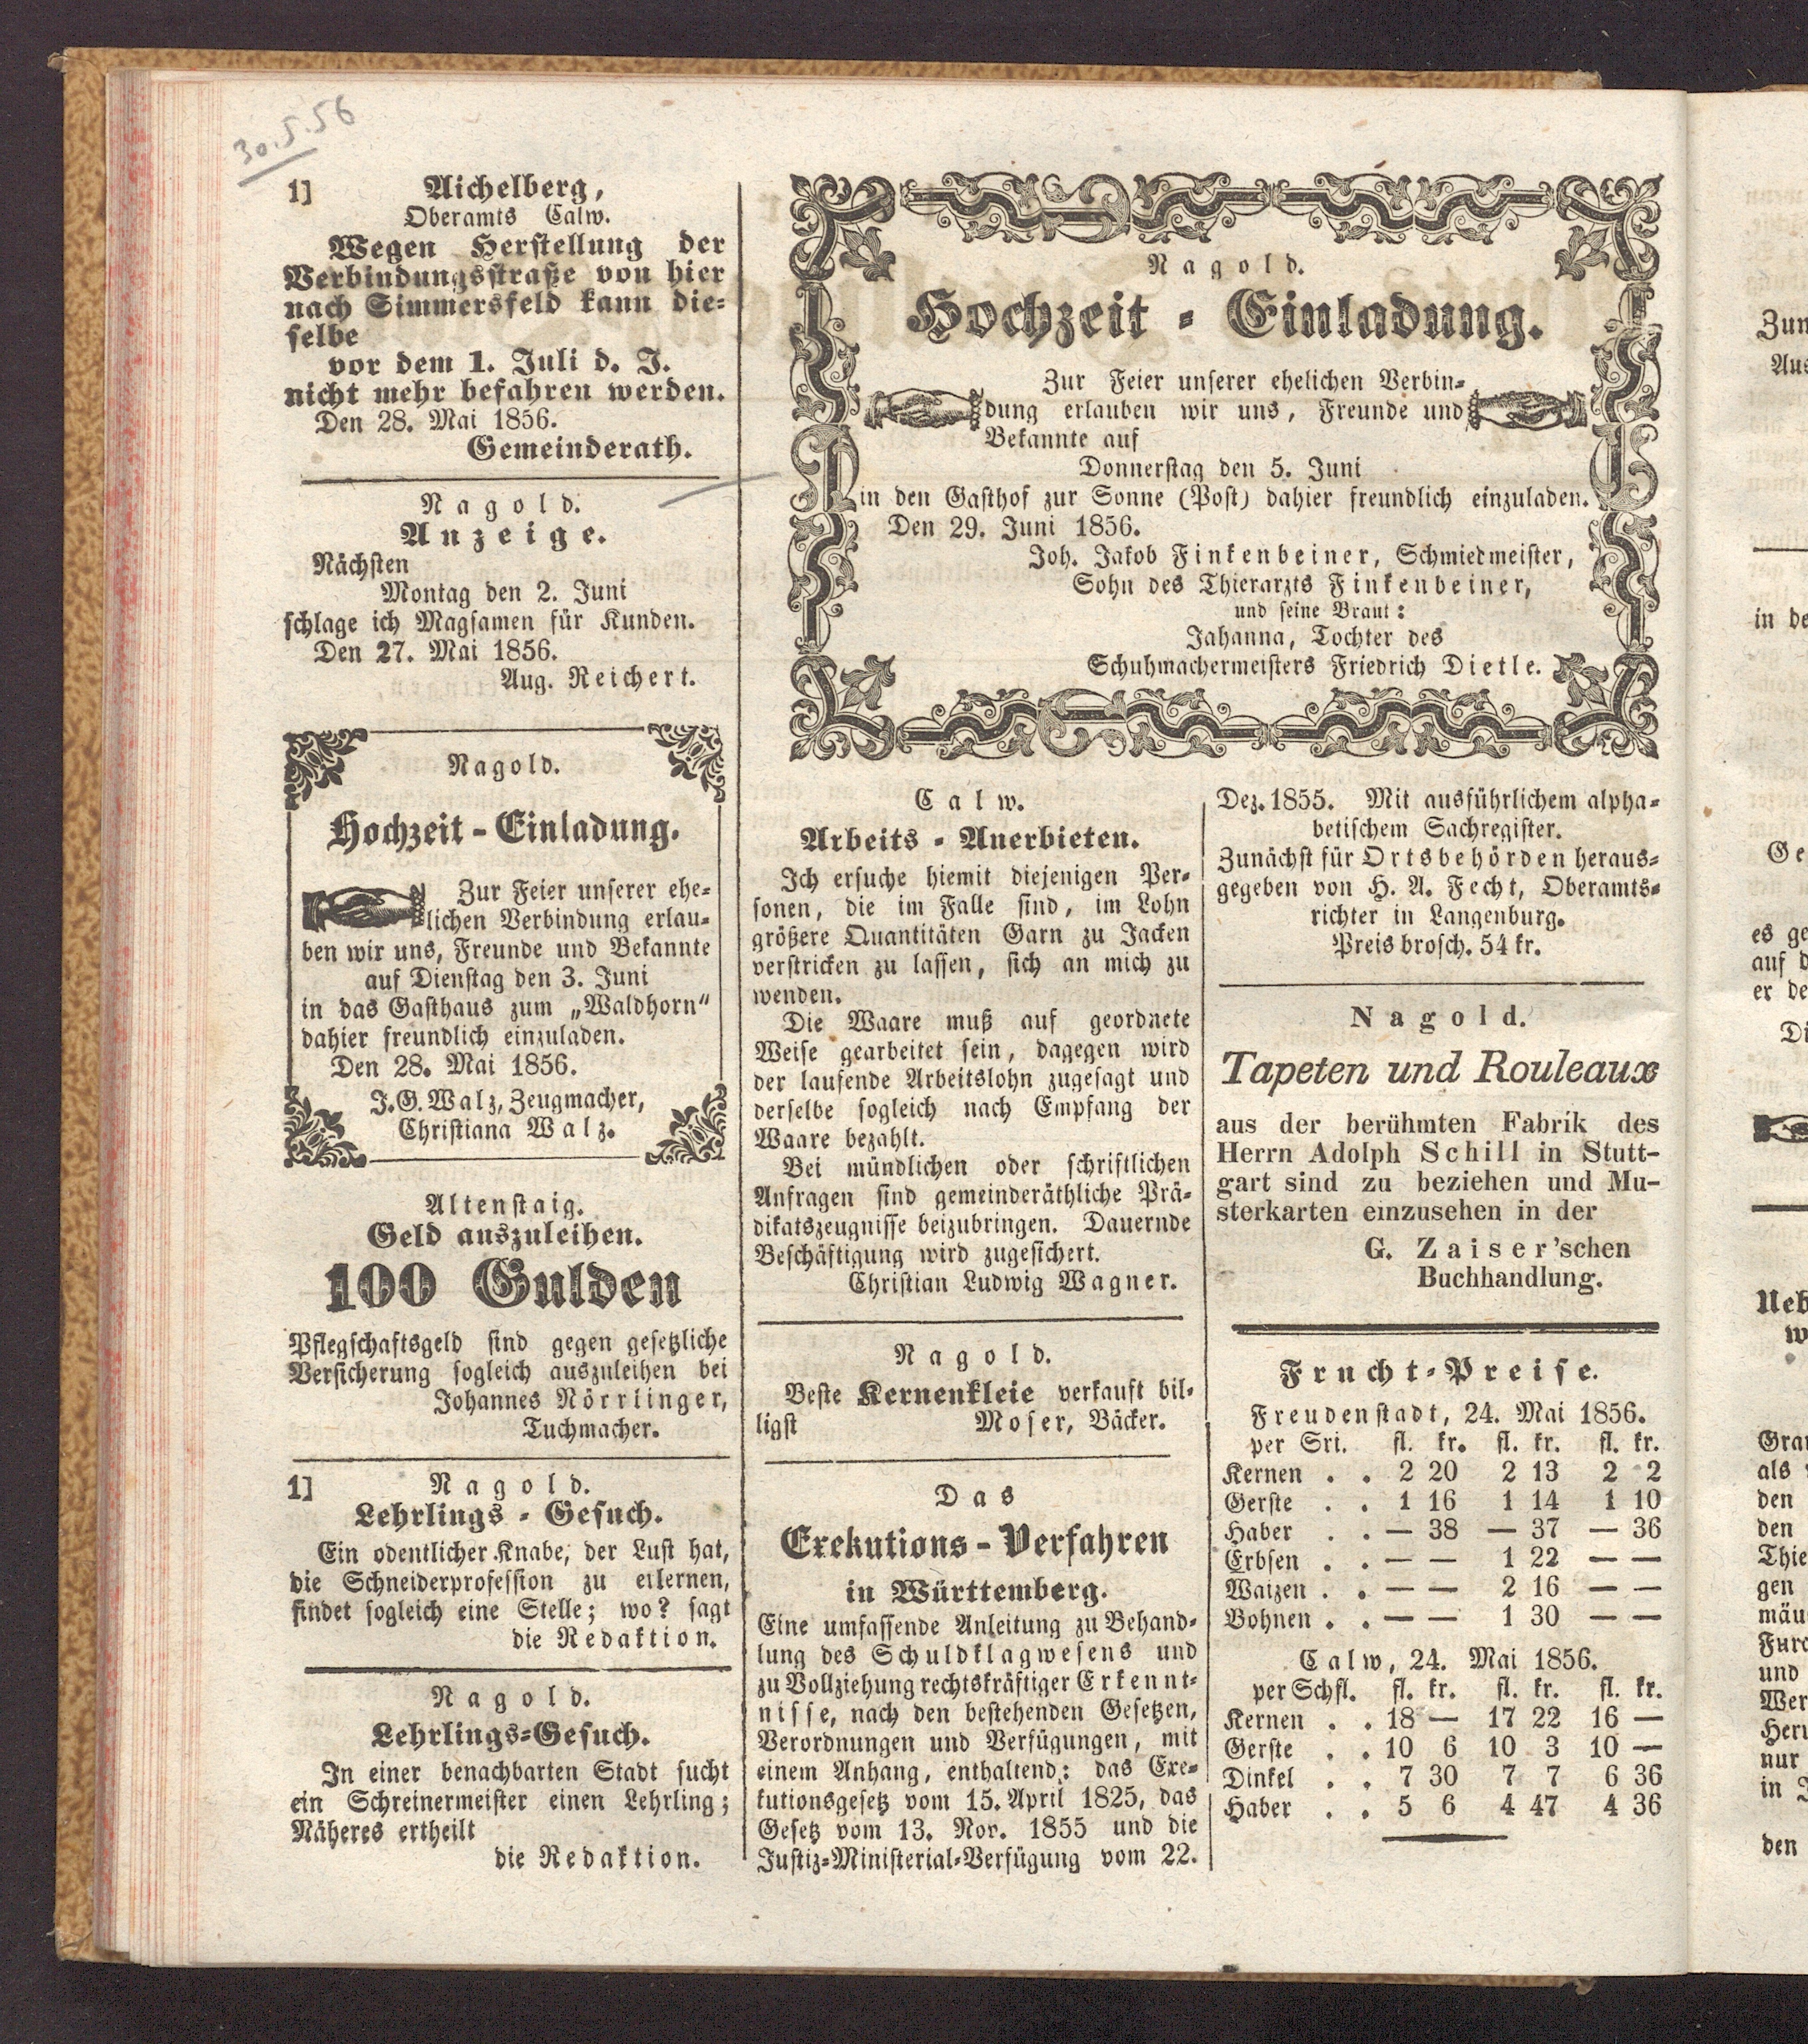 30.5.56
1] Aichelberg,
Oberamts Calw.
Wegen Herstellung der
Verbindungsstraße von hier
nach Simmersfeld kann die-
selbe
vor dem 1. Juli d. J.
nicht mehr befahren werden.
Den 28. Mai 1856.
Gemeinderath.
Nagold.
Anzeige.
Nächsten
Montag den 2. Juni
schlage ich Magsamen für Kunden.
Den 27. Mai 1856.
Aug. Reichert.
Nagold.
Hochzeit-Einladung.
Zur Feier unserer ehe-
lichen Verbindung erlau-
ben wir uns, Freunde und Bekannte
auf Dienstag den 3. Juni
in das Gasthaus zum „Waldhorn“
dahier freundlich einzuladen.
Den 28. Mai 1856.
J. G. Walz, Zeugmacher,
Christiana Walz.
Altenstaig.
Geld auszuleihen.
100 Gulden
Pflegschaftsgeld sind gegen gesetzliche
Versicherung sogleich auszuleihen bei
Johannes Nörrlinger,
Tuchmacher.
1] Nagold.
Lehrlings-Gesuch.
Ein odentlicher Knabe, der Lust hat,
die Schneiderprofession zu erlernen,
findet sogleich eine Stelle; wo? sagt
die Redaktion.
Nagold.
Lehrlings-Gesuch.
In einer benachbarten Stadt sucht
ein Schreinermeister einen Lehrling;
Näheres ertheilt
die Redaktion.
Nagold.
Hochzeit-Einladung.
Zur Feier unserer ehelichen Verbin-
dung erlauben wir uns, Freunde und
Bekannte auf
Donnerstag den 5. Juni
in den Gasthof zur Sonne (Post) dahier freundlich einzuladen.
Den 29. Juni 1856.
Joh. Jakob Finkenbeiner, Schmiedmeister,
Sohn des Thierarzts Finkenbeiner,
und seine Braut:
Jahanna, Tochter des
Schuhmachermeisters Friedrich Dietle.
Calw.
Arbeits-Anerbieten.
Ich ersuche hiemit diejenigen Per-
sonen, die im Falle sind, im Lohn
größere Quantitäten Garn zu Jacken
verstricken zu lassen, sich an mich zu
wenden.
Die Waare muß auf geordnete
Weise gearbeitet sein, dagegen wird
der laufende Arbeitslohn zugesagt und
derselbe sogleich nach Empfang der
Waare bezahlt.
Bei mündlichen oder schriftlichen
Anfragen sind gemeinderäthliche Prä-
dikatszeugnisse beizubringen. Dauernde
Beschäftigung wird zugesichert.
Christian Ludwig Wagner.
Nagold.
Beste Kernenkleie verkauft bil-
ligst Moser, Bäcker.
Das
Exekutions-Verfahren
in Württemberg.
Eine umfassende Anleitung zu Behand-
lung des Schuldklagwesens und
zu Vollziehung rechtskräftiger Erkennt-
nisse, nach den bestehenden Gesetzen,
Verordnungen und Verfügungen, mit
einem Anhang, enthaltend: das Exe-
kutionsgesetz vom 15. April 1825, das
Gesetz vom 13. Nov. 1855 und die
Justiz-Ministerial-Verfügung vom 22.
Dez. 1855. Mit ausführlichem alpha-
betischem Sachregister.
Zunächst für Ortsbehörden heraus-
gegeben von H. A. Fecht, Oberamts-
richter in Langenburg.
Preis brosch. 54 kr.
Nagold.
Tapeten und Rouleaux
aus der berühmten Fabrik des
Herrn Adolph Schill in Stutt-
gart sind zu beziehen und Mu-
sterkarten einzusehen in der
G. Zaiser'schen
Buchhandlung.
Frucht-Preise.
Freudenstadt, 24. Mai 1856.
per Sri. fl. kr. fl. kr. fl. kr.
Kernen . . 2 20 2 13 2 2
Gerste . . 1 16 1 14 1 10
Haber . . — 38 — 37 — 36
Erbsen . . — — 1 22 — —
Waizen . . — — 2 16 — —
Bohnen . . — — 1 30 — —
Calw, 24. Mai 1856.
per Schfl. fl. kr. fl. kr. fl. kr.
Kernen . . 18 — 17 22 16 —
Gerste . . 10 6 10 3 10 —
Dinkel . . 7 30 7 7 6 36
Haber . . 5 6 4 47 4 36